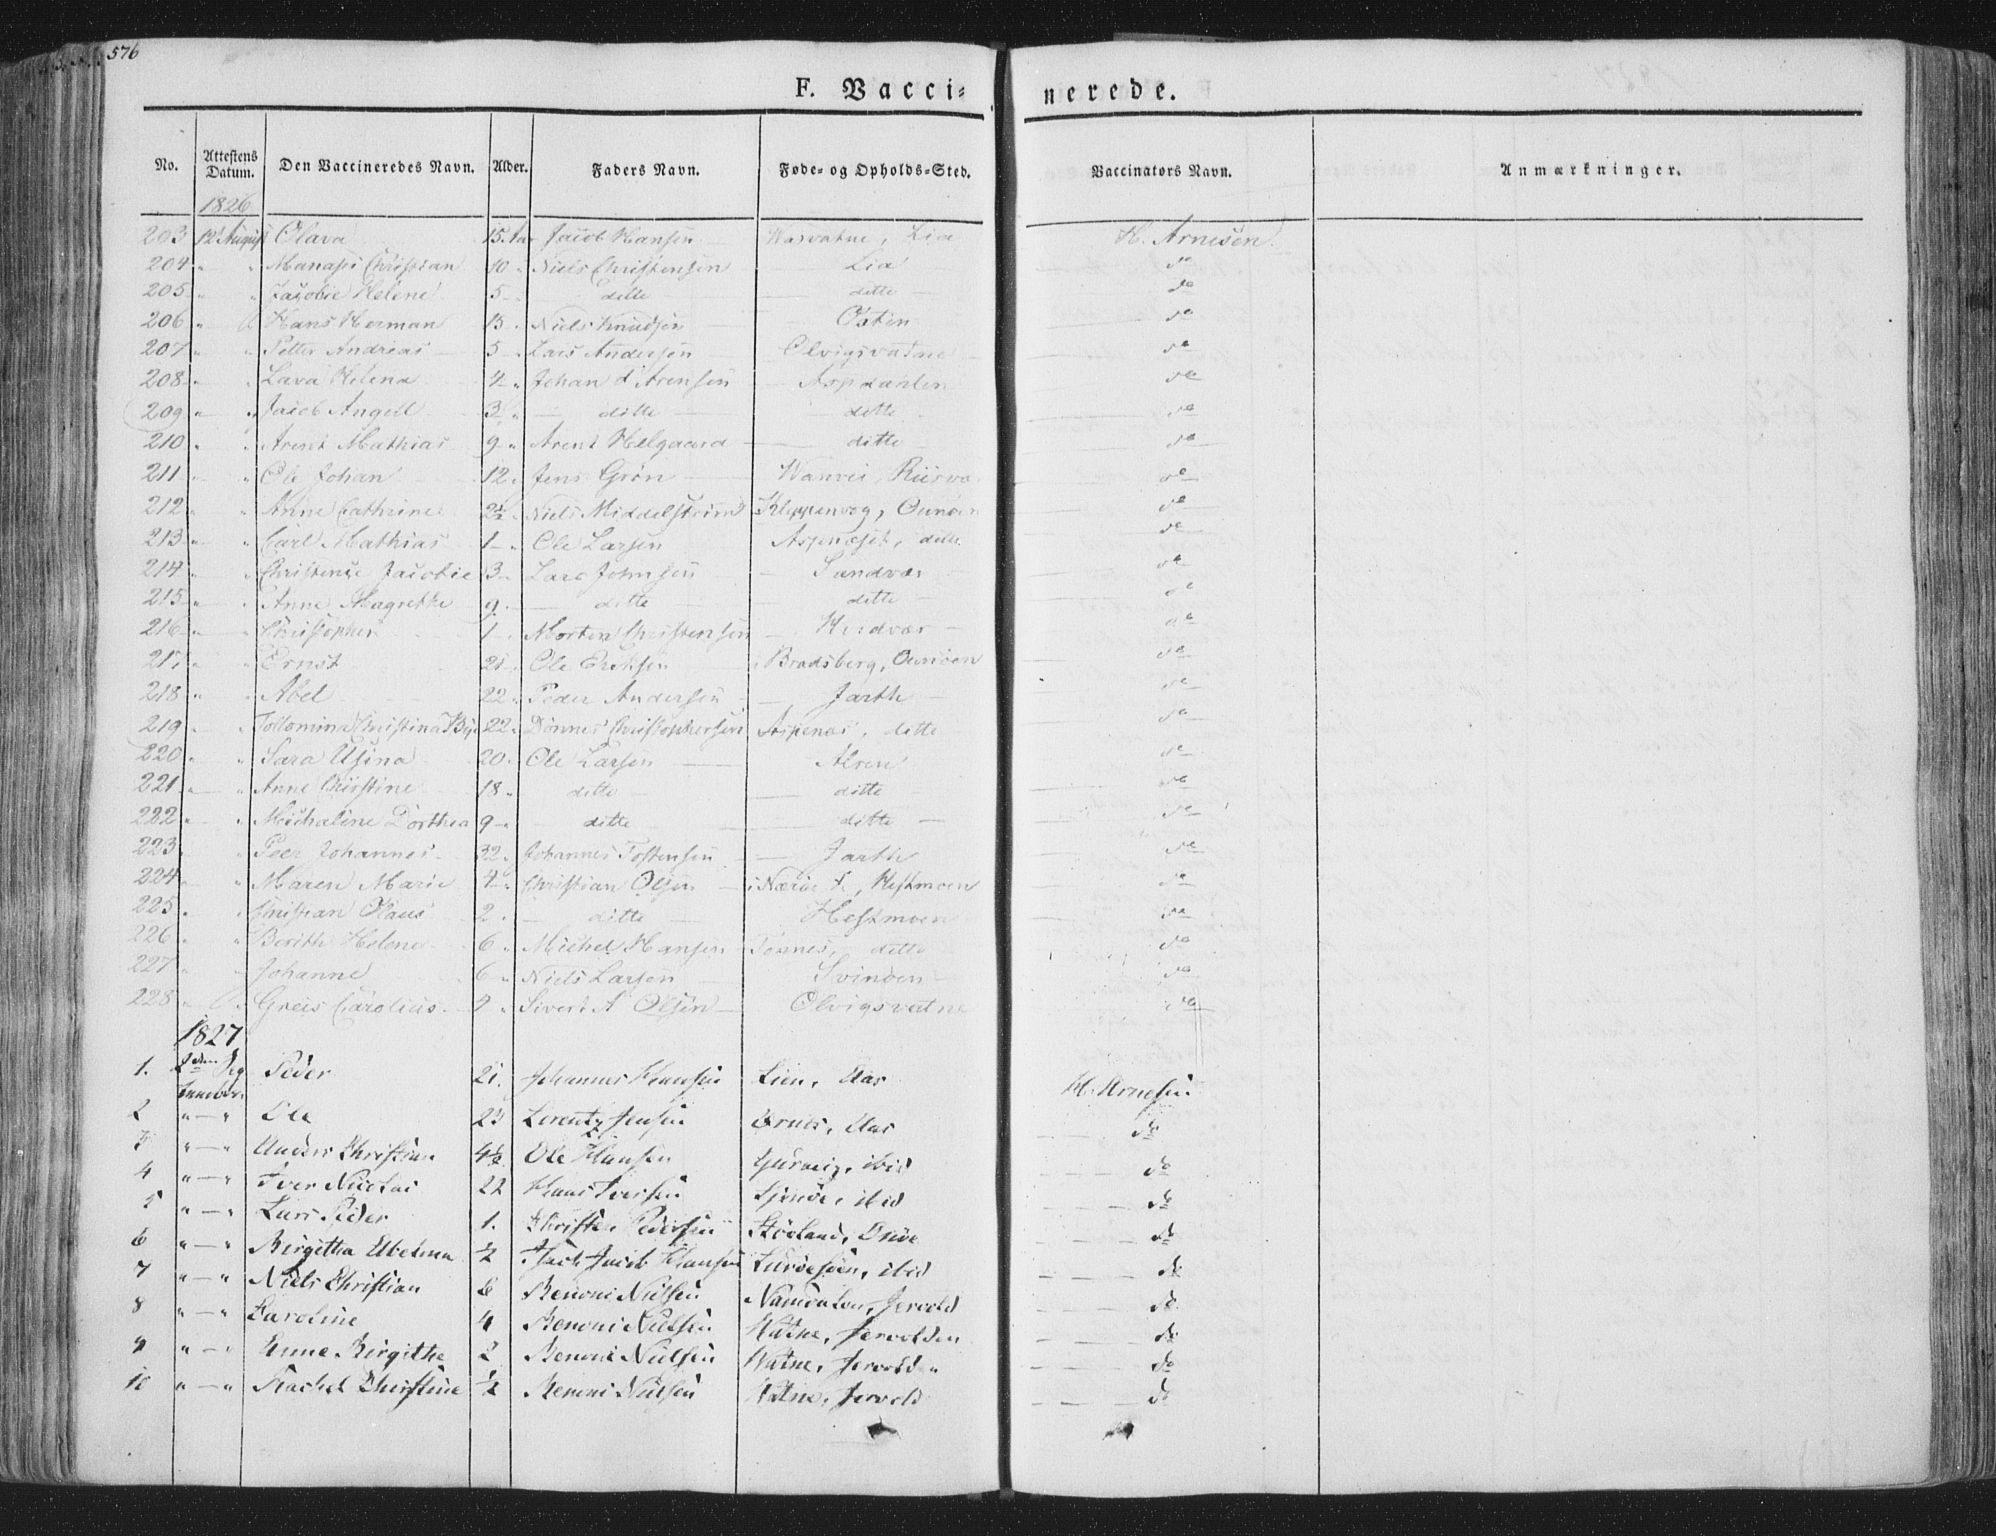 576
F. Vacci= nerede.
No. Attestens Datum. Den Vaccineredes Navn. Alder. Faders Navn. Føde= og Opholds=Sted. Vaccinators Navn. Anmærkninger.
1826
203 12 August Olava 15 Aar Jacob Hansen Lia H. Arnesen
204 " " Christian 10 " Niels Christensen Lia do
205 " " Jacobie Helene 5 " ditte ditte do
206 " " Hans Herman 15 " Niels Knudsen do
207 " " Petter Andreas 5 " Lars Andersen Olvigsvatne do
208 " " Lava Helena 4 " Johan Arensen Aspdahlen do
209 " " Jacob Angell 3 " ditte ditte do
210 " " Arent Mathias 9 " Arent Helgaard ditte do
211 " " Ole Johan 12 " Jens Grøn do
212 " " Anne Cathrine 2½ " Niels Middelstrøm do
213 " " Carl Mathias 1 " Ole Larsen ditte do
214 " " Christense Jacobie 3 " Lars Johnsen Sandvær do
215 " " Anne Magrethe 9 " ditte ditte do
216 " " Christopher 1 " Morten Christensen do
217 " " Ernst 21 " Ole Eriksen Bradsberg, do
218 " " Abel 22 " Peder Andersen Jarth do
219 " " Christina 22 " Dønnes Christophersen Aspenes, ditte do
220 " " Sara Usina 20 " Ole Larsen Alren do
221 " " Anne Christine 18 " ditte ditte do
222 " " Michaline Dorthea 9 " ditte ditte do
223 " " Peer Johannes 32 " Johannes Tostensen Jarth do
224 " " Maren Marie 4 " Christian Olsen Hestmoen do
225 " " Christian Klaus 2 " ditte Hestmoen do
226 " " Berith Helene 6 " Michel Hansen Tonnes, ditte do
227 " " Johanne 6 " Niels Larsen Svinøen do
228 " " Greis Carolius 2 " Sivert A Olsen Olvigsvatne do
1827
1. Peder 21. Johannes Hansen Lien, Aas H. Arnesen
2 " — " Ole 23 Lorentz Jensen Ørnes, Aas do
3 " — " Anders Christian 4½ Ole Hansen ibid do
4 " — " Iver Nicolai 22 Hans Iversen ibid do
5 " — " Lars Peder 1. Christen Pedersen do
6 " — " Birgitha ½ Jacob Hansen ibid do
7 " — " Niels Christian 6 Benoni Nielsen do
8 " — " Caroline 4 Benoni Nielsen Watne, Jervolden do
9 " — " Anne Birgithe 2 Benoni Nielsen Watne, Jervolden do
10 " — " Rachel Christine ½ Benoni Nielsen Watne, Jervold do